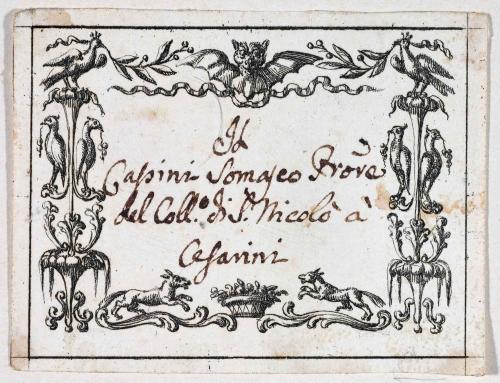 Il
Cassini Somasco Provre
del Coll.o di S. Nicolò à
Cesarini